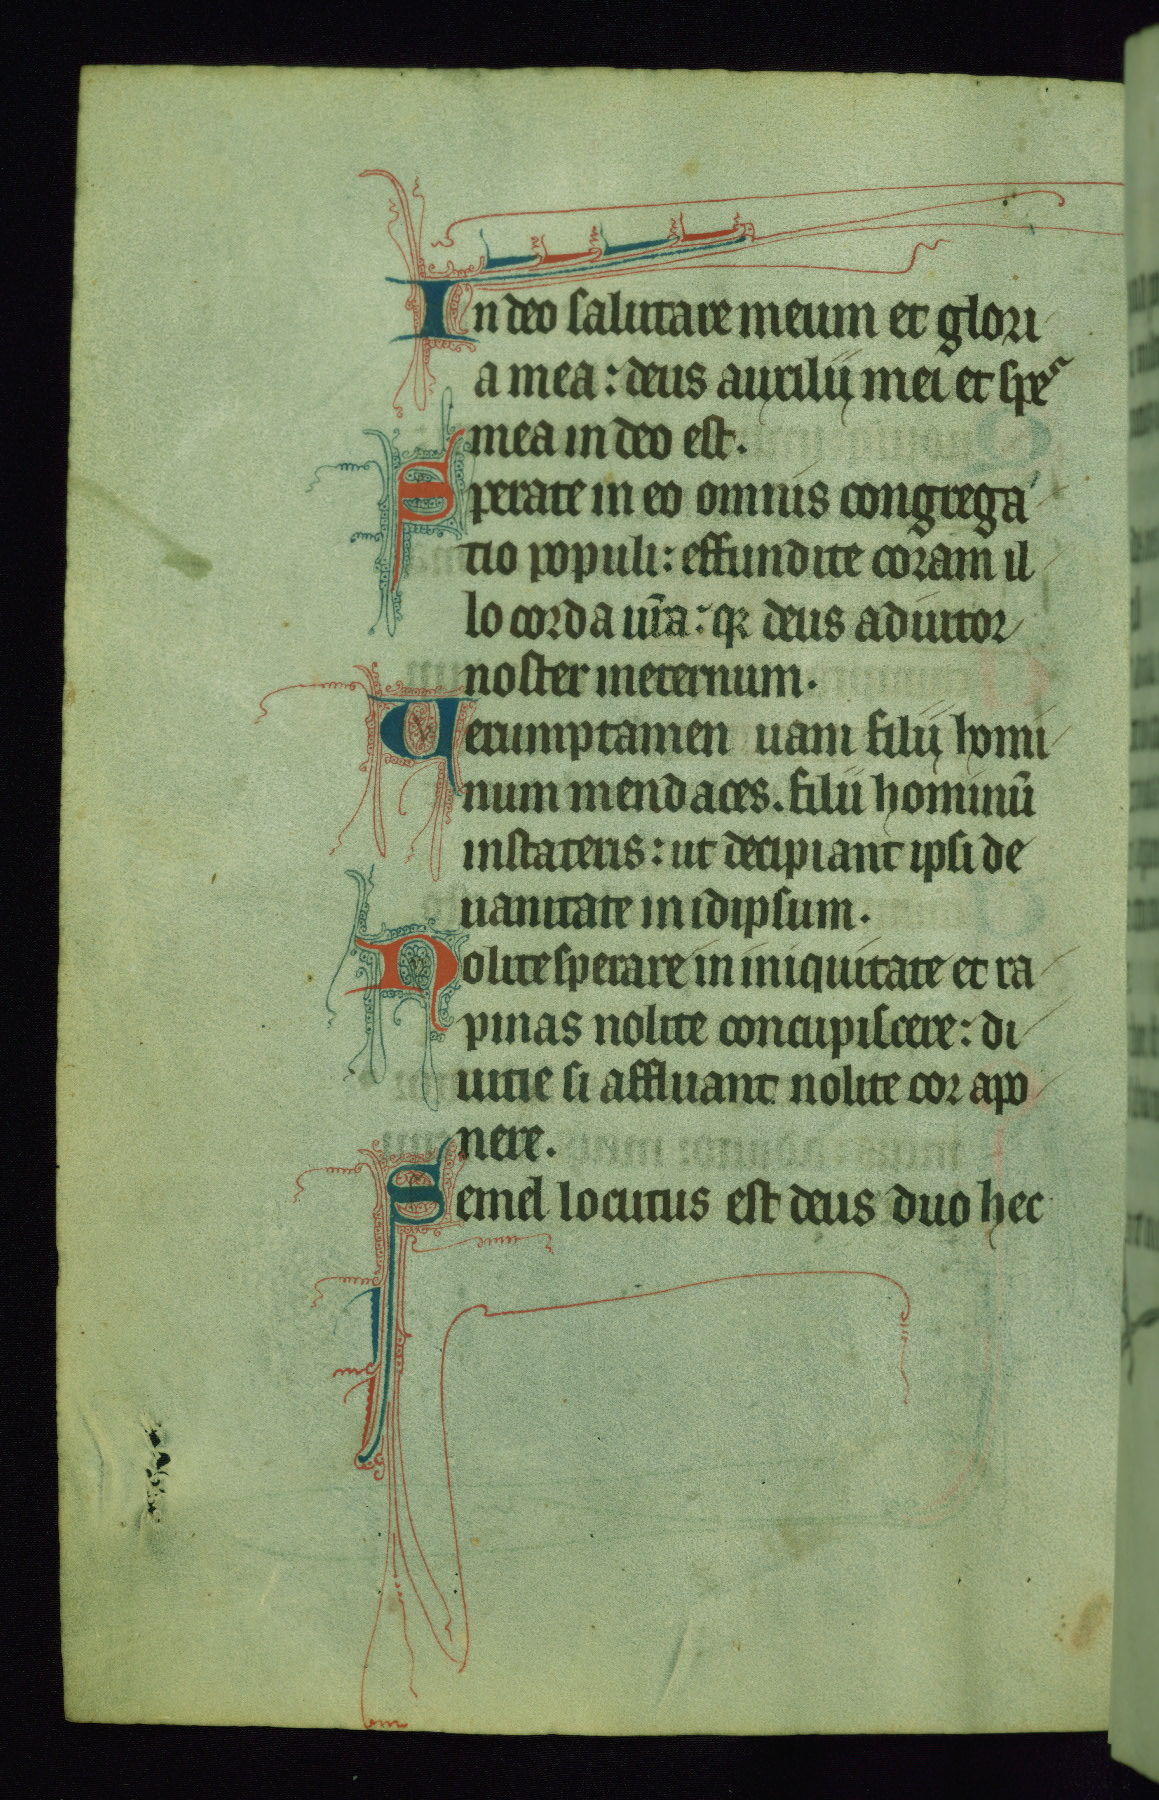 In deo salutare meum et glori
a mea : deus auxilij mei et spes
mea in deo est.
Sperate in eo omnis congrega
tio populi : effundite coram il
lo corda ur̄a : qꝛ deus adiutor
noster ineternum.
Uerumptamen uani filij homi
num mendaces. filii hominū
instateris : ut decipiant ipsi de
uanitate in idipsum.
Nolite sperare in iniquitate et ra
pinas nolite concupiscere : di
uitie si affluant nolite cor apo
nere.
Semel locutus est deus duo hec